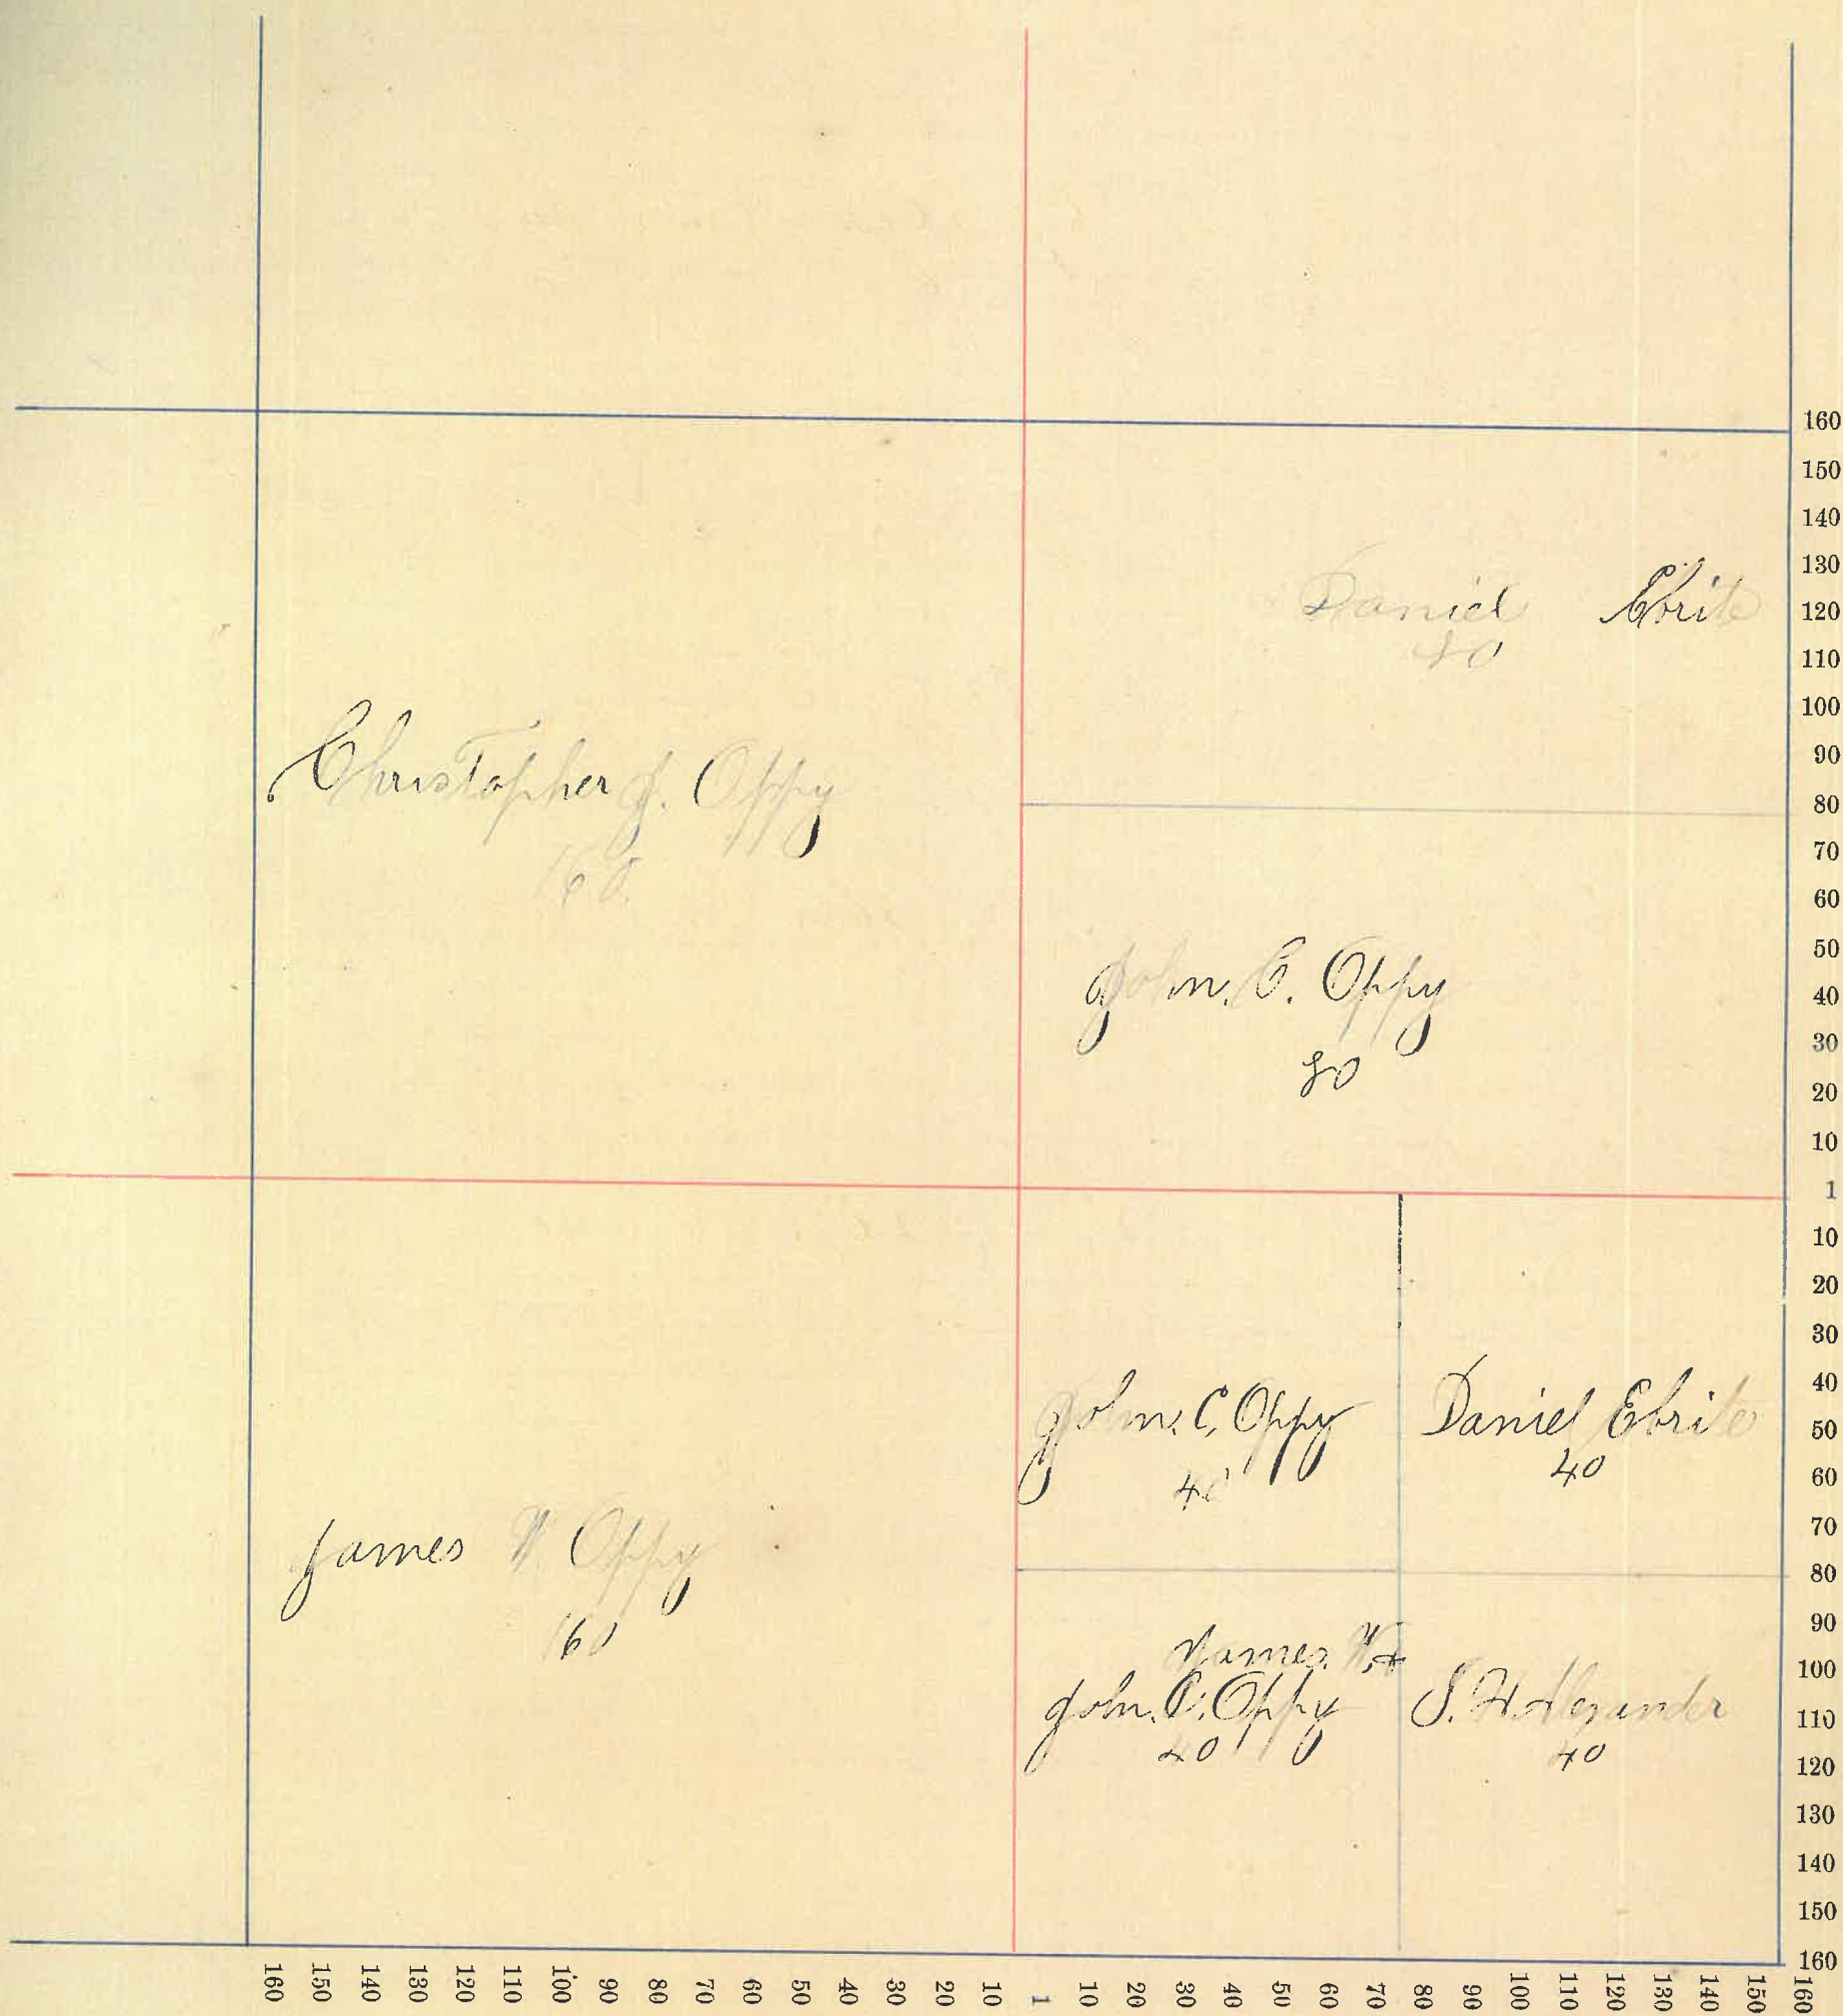 Daniel Ebrite
80
Christopher J. Oppy
160.
John. C. Oppy
80
John. C. Oppy
40
Daniel Ebrite
40
James W. Oppy
160
James. W. +
John. C. Oppy
40
S. H. Alexander
40
160
150
140
130
120
110
100
90
80
70
60
50
40
30
20
10
1
10
20
30
40
50
60
70
80
90
100
110
120
130
140
150
160
160 150 140 130 120 110 100 90 80 70 60 50 40 30 20 10 1 10 20 30 40 50 60 70 80 90 100 110 120 130 140 150 160